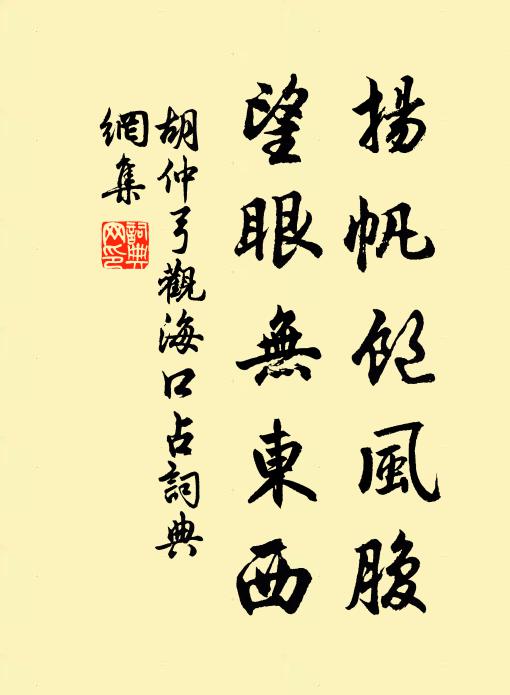 揚帆飽風腹
望眼無東西
胡仲弓觀海口占詞典
網集
詞典網印